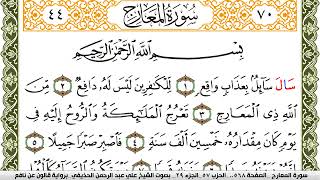 ٧٠ سُورَةُ الْمَعَارِجِ ٤٤
بِسْمِ اللَّهِ الرَّحْمَٰنِ الرَّحِيمِ
سَالَ سَآئِلٌ بِعَذَابٍ وَاقِعٍ ١ لِّلْكَٰفِرِينَ لَيْسَ لَهُۥ دَافِعٌ ٢ مِّنَ
اَللَّهِ ذِي الْمَعَارِجِ ٣ تَعْرُجُ الْمَلَٰٓئِكَةُ وَالرُّوحُ إِلَيْهِ فِي
يَوْمٍ كَانَ مِقْدَارُهُۥ خَمْسِينَ أَلْفَ سَنَةٍ ٤ فَاصْبِرْ صَبْرًا جَمِيلًا ٥
سورة المعارج . الصفحة ٥٦٨.. الحزب ٥٧ الجزء ٢٩ . بصوت الشيخ علي عبد الرحمن الحذيفي . برواية قالون عن نافع